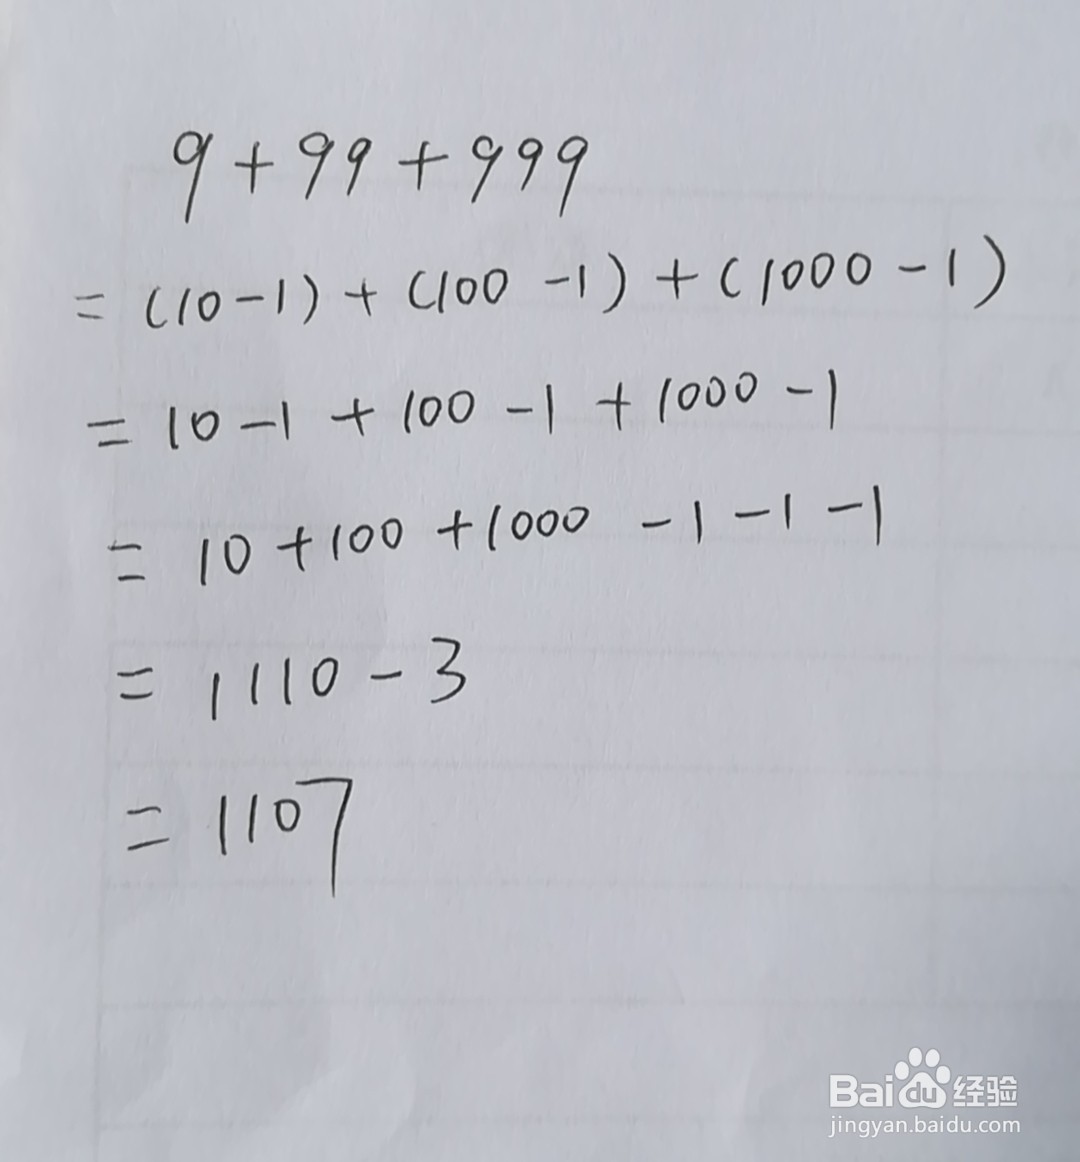 9+99+999
=(10-1)+(100-1)+(1000-1)
=10-1+100-1+1000-1
=10+100+1000-1-1-1
=1110-3
=1107
Baidu经验
jingyan.baidu.com